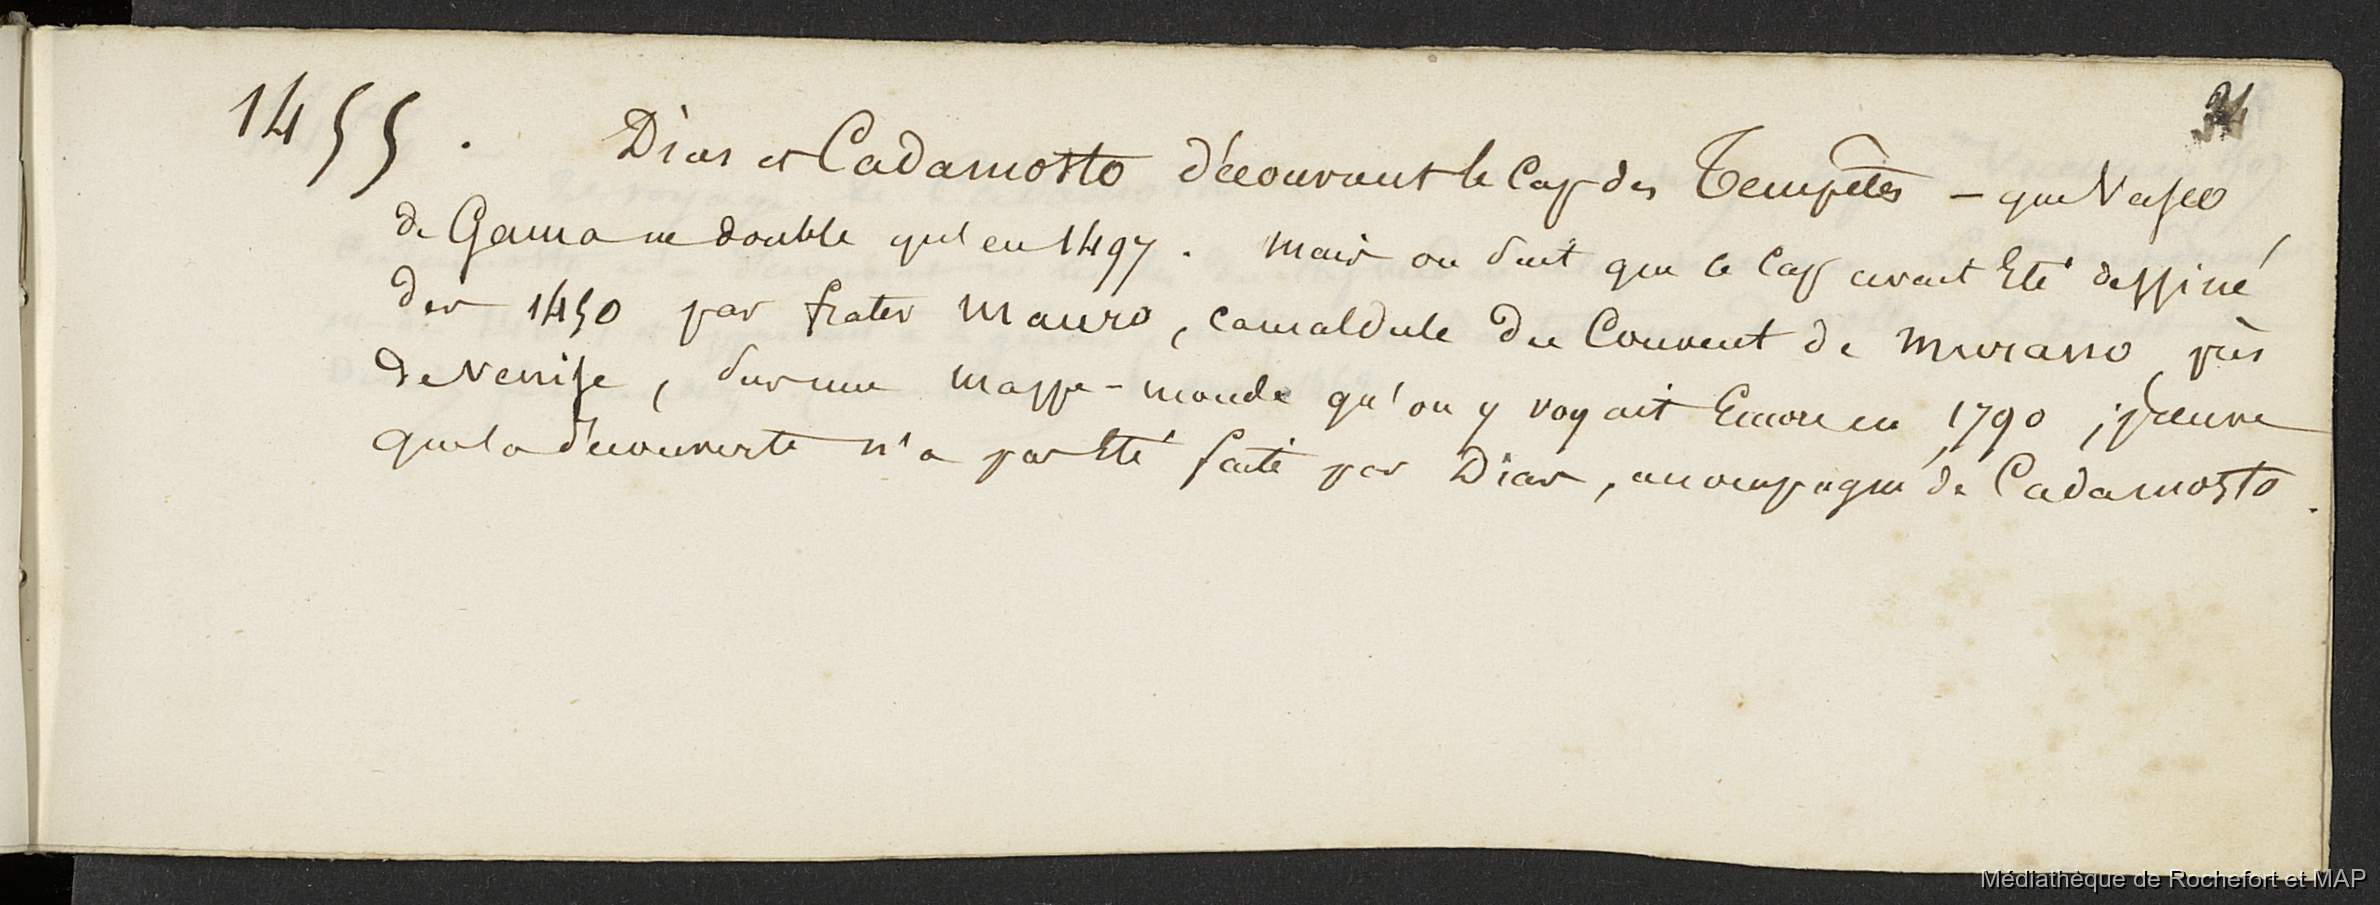 34
1455. Dias et Cadamosto découvrent le Cap des Tempêtes – que Vasco
de Gama ne double qu'en 1497. Mais on sait que le Cap avait été dessiné
des 1450 par frater Mauro, camaldule du Couvent de Murano, près
de Venise, sur une mappe-monde qu'on y voyait Encore en 1790 ; preuve
que la découverte n'a pas été faite par Dias, accompagné de Cadamosto.
Médiathèque de Rochefort et MAP